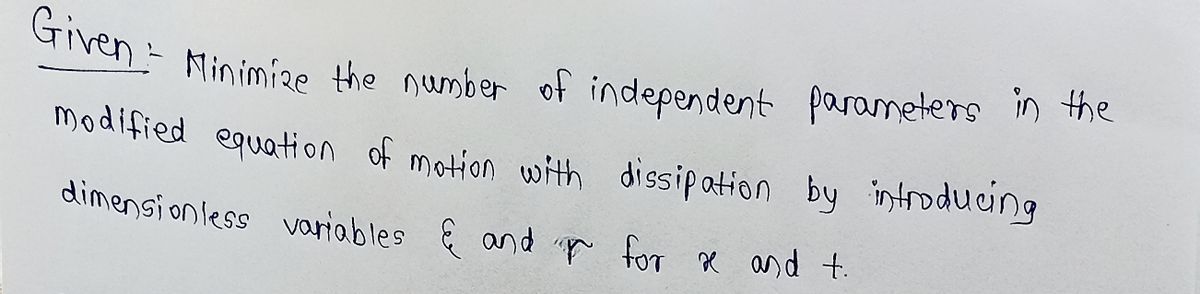 Given :- Minimize the number of independent parameters in the
modified equation of motion with dissipation by introducing
dimensionless variables ξ and τ for x and t.